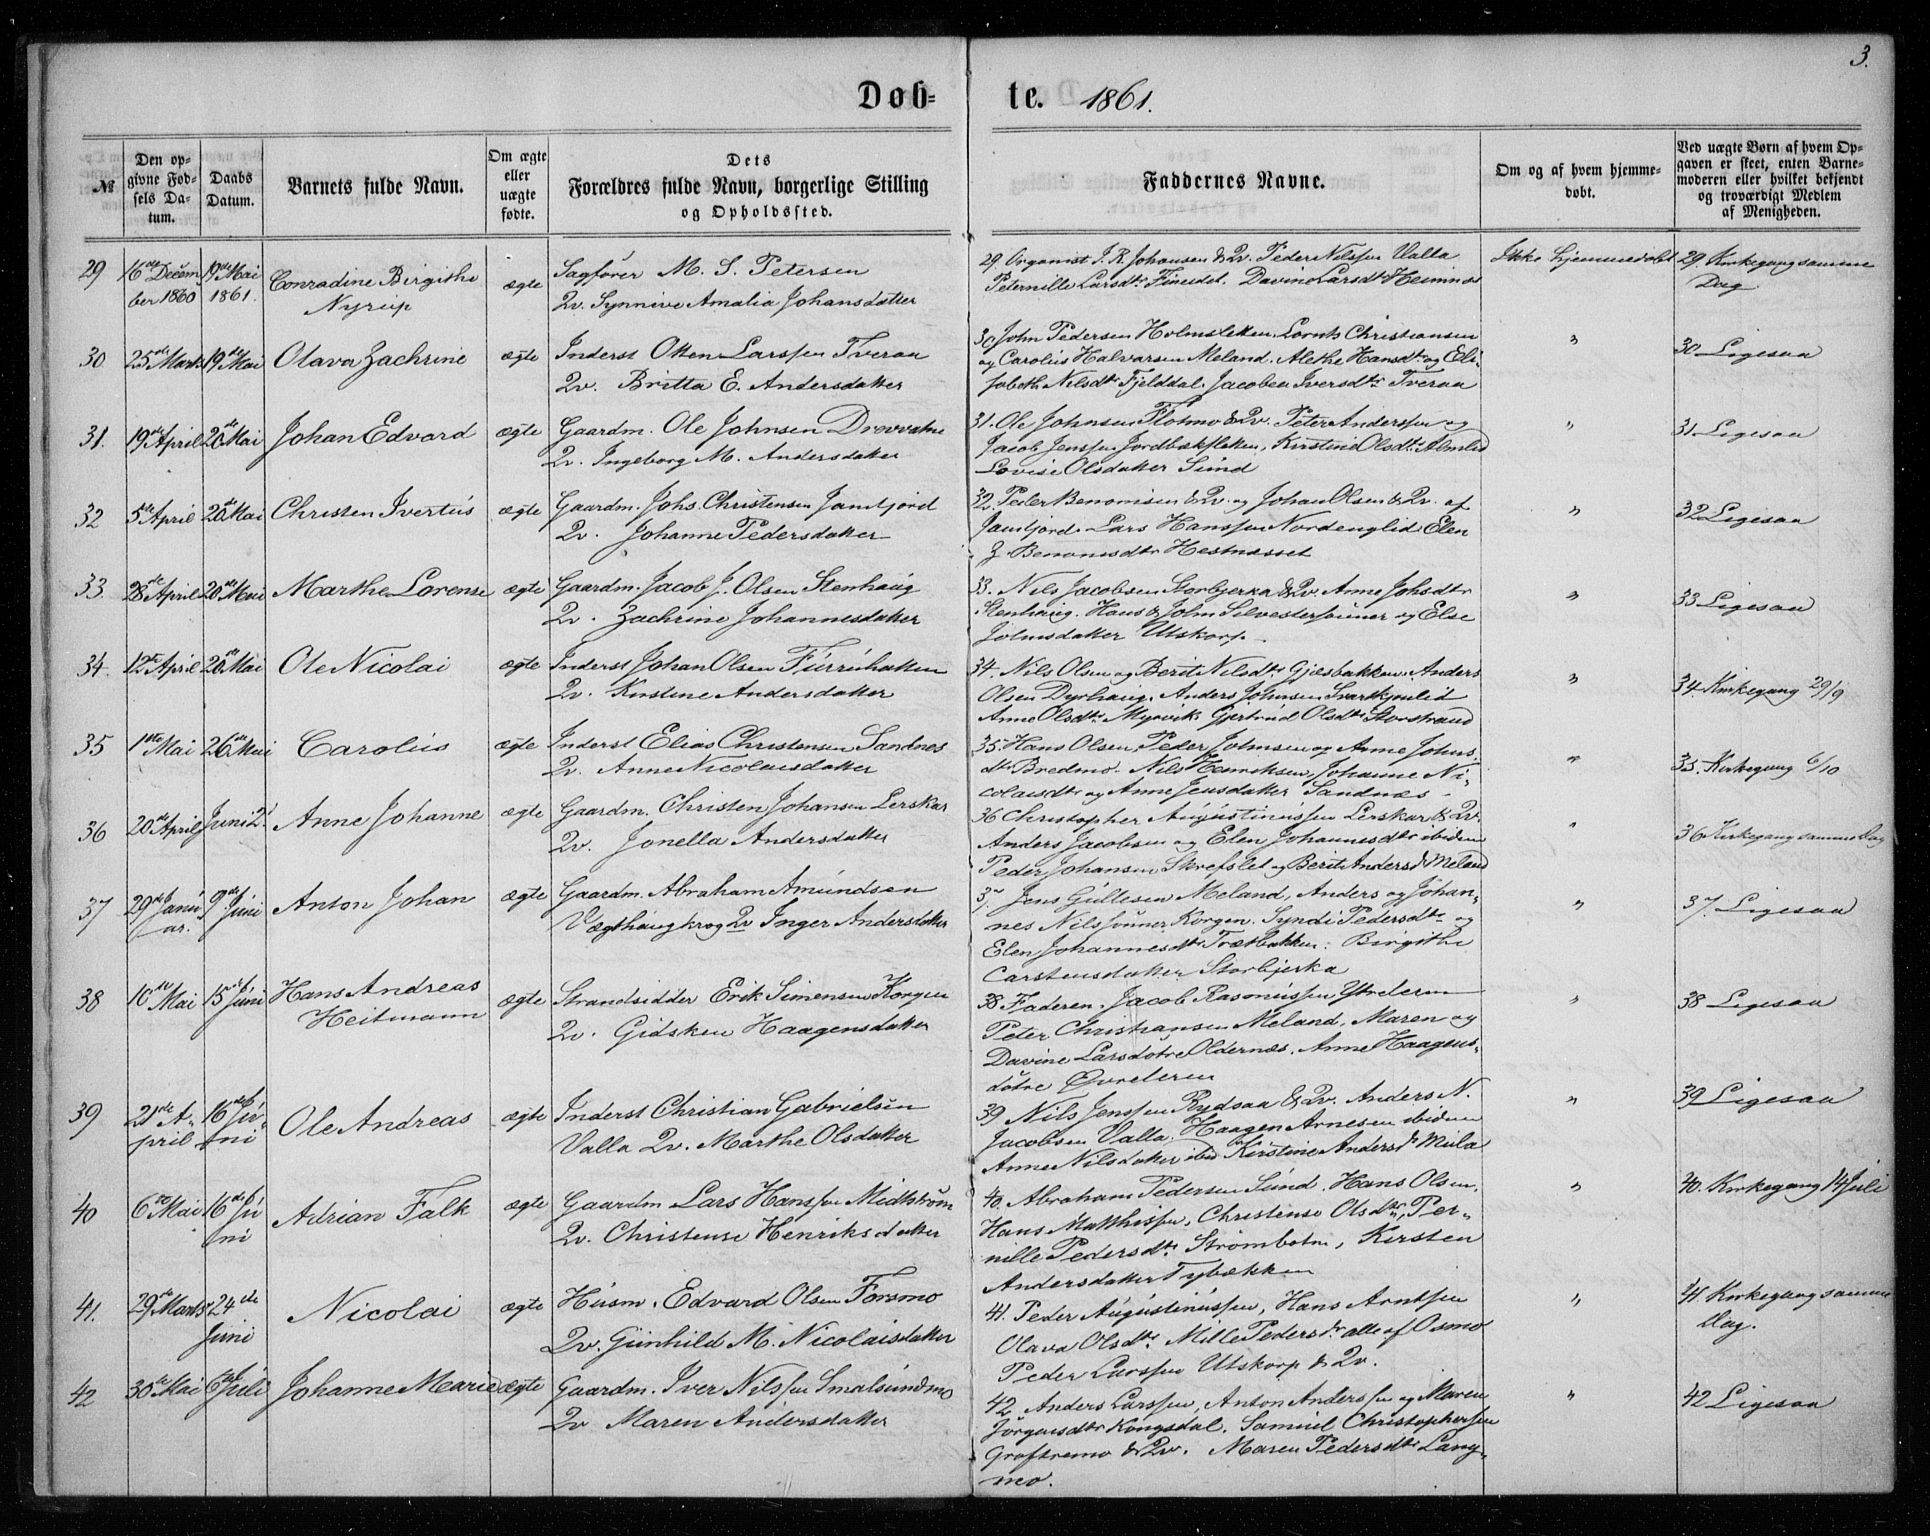 3.
Døb=
te. 1861.
№
Den op=
givne Fød=
sels Da=
tum.
Daabs
Datum.
Barnets fulde Navn.
Om ægte
eller
uægte
fødte.
Dets
Forældres fulde Navn, borgerlige Stilling
og Opholdssted.
Faddernes Navne.
Om og af hvem hjemme=
døbt.
Ved uægte Børn af hvem Op=
gaven er skeet, enten Barne=
moderen eller hvilket bekjendt
og troværdigt Medlem
af Menigheden.
29 16de Decem 19de Mai Conradine Birgithe ægte Sagfører M. S. Petersen
ber 1860 1861. Nyrup Qv. Synnive Amalia Johansdatter
29 Organist J. R. Johansen & Qv. Peder Nilssen Valla Ikke hjemmedøbt 29. Kirkegang samme
Peternille Larsdtr Fineidet. Davina Larsdtr Heimnæs Dag
30 25de Marts 19de Mai Olava Zachrine ægte Inderst Otten Larssen Tveraa
Qv. Britta E. Andersdatter
30 John Pedersen Holmsletten. Lornts Christiansen " 30 Ligesaa
og Carolius Halvarsen Meland. Alethe Hansdtr og Eli=
sabeth Nilsdtr Fjelddal. Jacobea Iversdtr Tveraa
31. 19de April 20de Mai Johan Edvard ægte Gaardm. Ole Johnsen Drevvatne
Qv. Ingeborg M. Andersdatter
31. Ole Johnsen Flotmo & Qv. Peter Anderssen og " 31 Ligesaa
Jacob Jenssen Jordbækfletten, Kirstine Olsdtr Almlid
Lovise Olsdatter Sund
32 5te April 20de Mai Christen Ivertus ægte Gaardm. Johs. Christensen Jamtjord
Qv. Johanne Pedersdatter
32. Peder Benonisen & Qv. og Johan Olsen & Qv. af " 32 Ligesaa
Jamtjord. Lars Hanssen Nordenglid Elen
Benonisdtr Hestnesset
33. 28de April 20de Mai Marthe Lorense ægte Gaardm. Jacob J. Olsen Stenhaug
Qv. Zachrine Johannesdatter
33. Nils Jacobsen Storbjerka & Qv. Anne Johsdtr " 33 Ligesaa
Stenhaug. Hans & John Silvestersønner og Else
Johnsdatter Utskorp
34. 12te April 20de Mai Ole Nicolai ægte Inderst Johan Olsen Furruhatten
Qv. Kirstine Andersdatter
34. Nils Olsen og Berit Nilsdtr Gjesbakken. Anders " 34. Kirkegang 29/9
Olsen Dyrhaug. Anders Johnsen Svartkjønlid
Anne Olsdtr Myrvik. Gjertrud Olsdtr Storstrand
35 1ste Mai 26de Mai Carolius ægte Inderst Elias Christensen Sandnes
Qv. Anne Nicolaisdatter
35. Hans Olsen, Peder Johnsen og Anne Johns= " 35. Kirkegang 6/10
dtr Bredmo. Nils Henriksen, Johanne Ni=
colaisdtr og Anne Jensdatter Sandnæs
36 20de April Juni 2d. Anne Johanne ægte Gaardm. Christen Johansen Lerskar
Qv. Jonella Andersdatter
36 Christopher Augustinussen Lerskar & Qv " 36 Kirkegang samme Dag
Anders Jacobsen og Elen Johannesdtr ibidem
Peder Johansen Skrefslet og Berit Andersdtr Meland
37 29de Janu 9de Juni Anton Johan ægte Gaardm. Abraham Amundsen
ar. Vægthaugkrog Qv Inger Andersdatter
37 Jens Gullesen Meland, Anders og Johan= " 37. Ligesaa
nes Nilssønner Korgen. Syndi Pedersdtr og
Elen Johannesdtr Trætbakken. Birgithe
Carstensdatter Storbjerka
38 10de Mai 15de Juni Hans Andreas ægte Strandsidder Erik Simensen Korgen
Heitmann Qv. Gidsken Haagensdatter
38 Faderen. Jacob Rasmussen Ytrederen " 38 Ligesaa
Peter Christiansen Meland, Maren og
Davine Larsdøtre Oldernæs. Anne Haagens=
døtre Øvrederen
39 21de A= 16de Ju= Ole Andreas ægte Inderst Christian Gabrielsen
pril ni Valla Qv. Marthe Olsdatter
39 Nils Jenssen Rydsaa & Qv. Anders N. " 39 Ligesaa
Jacobsen Valla. Haagen Arnesen ibidem
Anne Nilsdatter ibid Kirstine Andersdtr Mula
40 6te Mai 16de Ju Adrian Falk ægte Gaardm Lars Hanssen Midtstrøm
ni Qv. Christense Henriksdatter
40. Abraham Pedersen Sund. Hans Olsen, " 40. Kirkegang 14 Juli
Hans Matthissen, Christense Olsdtr, Per=
nille Pedersdtr Strømbotn, Kirsten
Andersdatter Tybækken
41. 29de Marts 24de Nicolai ægte Husm. Edvard Olsen Forsmo
Juni Qv. Gunhild M. Nicolaisdatter
41. Peder Augustinussen, Hans Arntsen " 41. Kirkegang samme
Olava Olsdtr Mille Pedersdtr alle af Osmo Dag.
Peder Larssen Utskorp & Qv.
42 30te Mai 6te Juli Johanne Marie ægte Gaardm. Iver Nilssen Smalsundmo
Qv Maren Andersdatter
42 Anders Larssen, Anton Anderssen og Maren " 42 Ligesaa
Jørgensdtr Kongsdal. Samuel Christophersen
Groftremo & Qv. Maren Pedersdtr Lang=
mo.